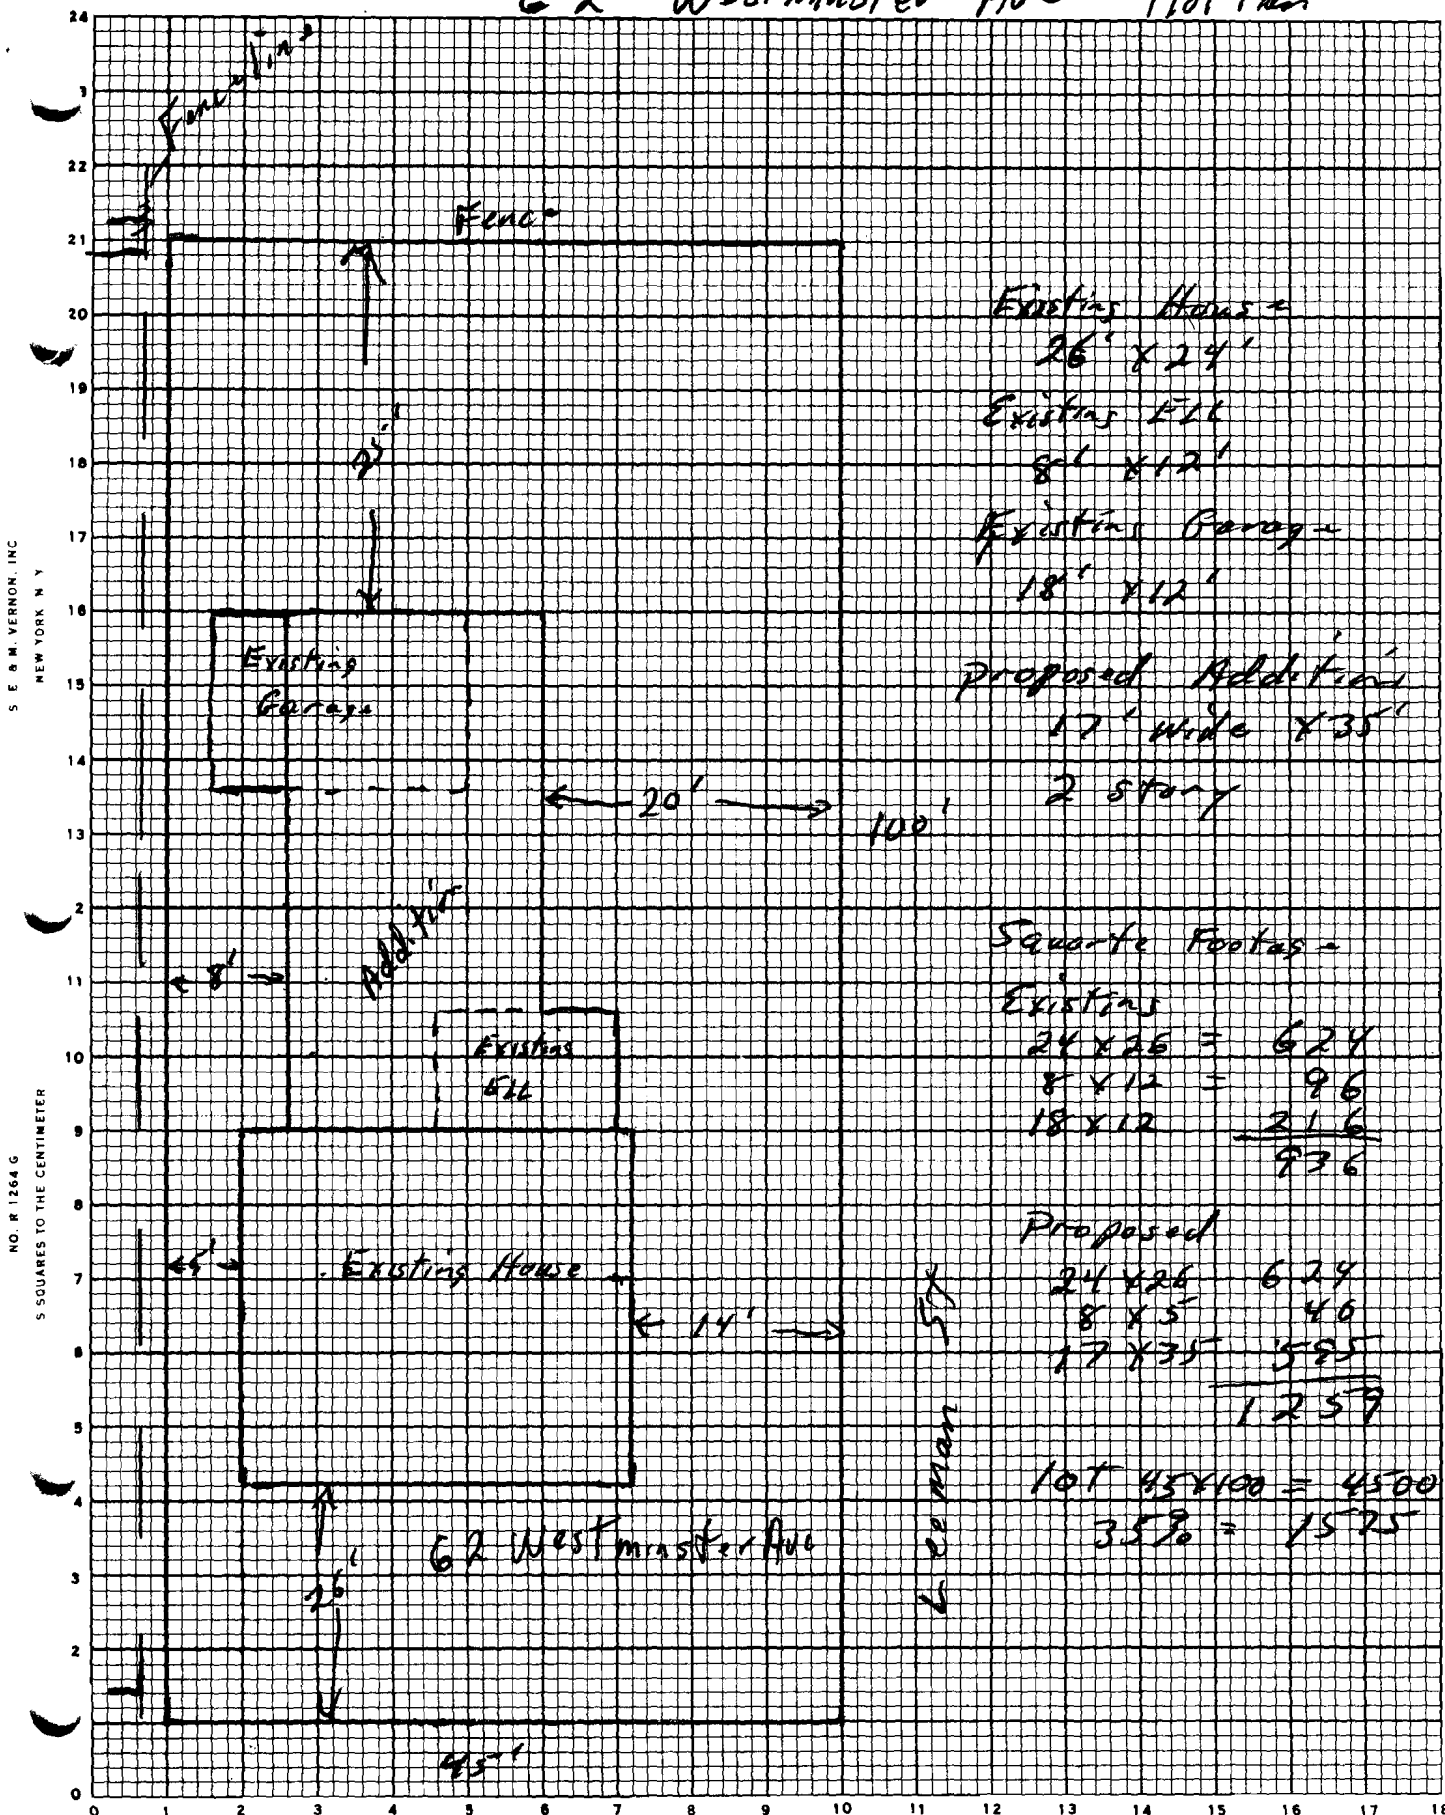 62 Westminster Ave Plot Plan
Fence Line
Fence
25'
Existing
Garage
20'
100'
Addition
8'
Existing
Ell
5'
Existing House
14'
26'
62 Westminster Ave
45'
Leeman St
Existing House
26' x 24'
Existing Ell
8' x 12'
Existing Garage
18' x 12'
Proposed Addition
17' wide x 35'
2 story
Squarte Footage
Existing
24 x 26 = 624
8 x 12 = 96
18 x 12 216
936
Proposed
24 x 26 624
8 x 5 40
17 x 35 595
1259
lot 45x100 = 4500
35% = 1575
S E & M. VERNON, INC
NEW YORK N Y
NO. R 1264 G
5 SQUARES TO THE CENTIMETER
24
3
22
21
20
19
18
17
16
15
14
13
2
11
10
9
8
7
6
5
4
3
2
0
0 1 2 3 4 5 6 7 8 9 10 11 12 13 14 15 16 17 18